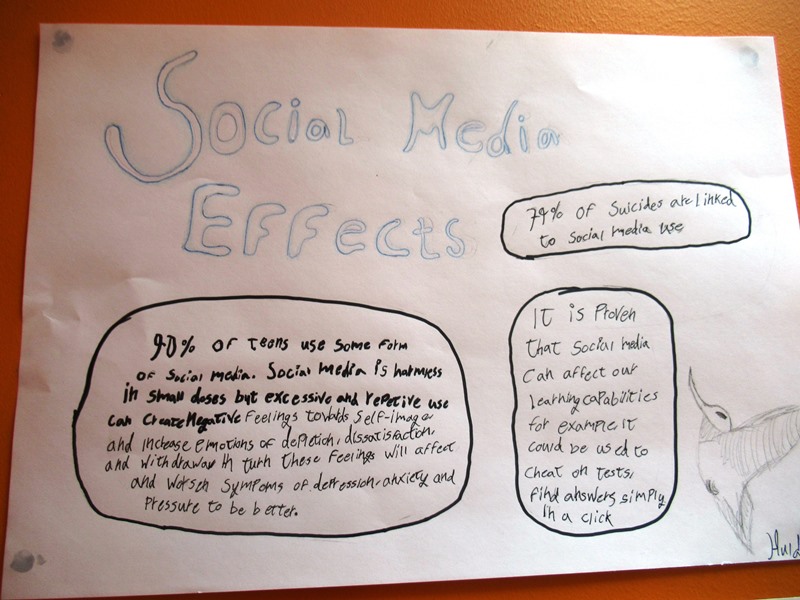 Social Media
Effects
74% of suicides are linked
to social media use
90% of teens use some form
of social media. Social media is harmless
in small doses but excessive and repetive use
can create negative feelings towards self-image
and increase emotions of depletion, dissatisfaction,
and withdrawaw In turn these feelings will affect
and worsen sympoms of depression, anxiety and
pressure to be better.
It is Proven
that social media
can affect our
learning capabilities
for example, it
could be used to
cheat on tests,
find answers simply
in a click